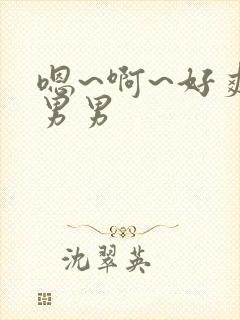 嗯~啊~好爽
男男
沈翠英